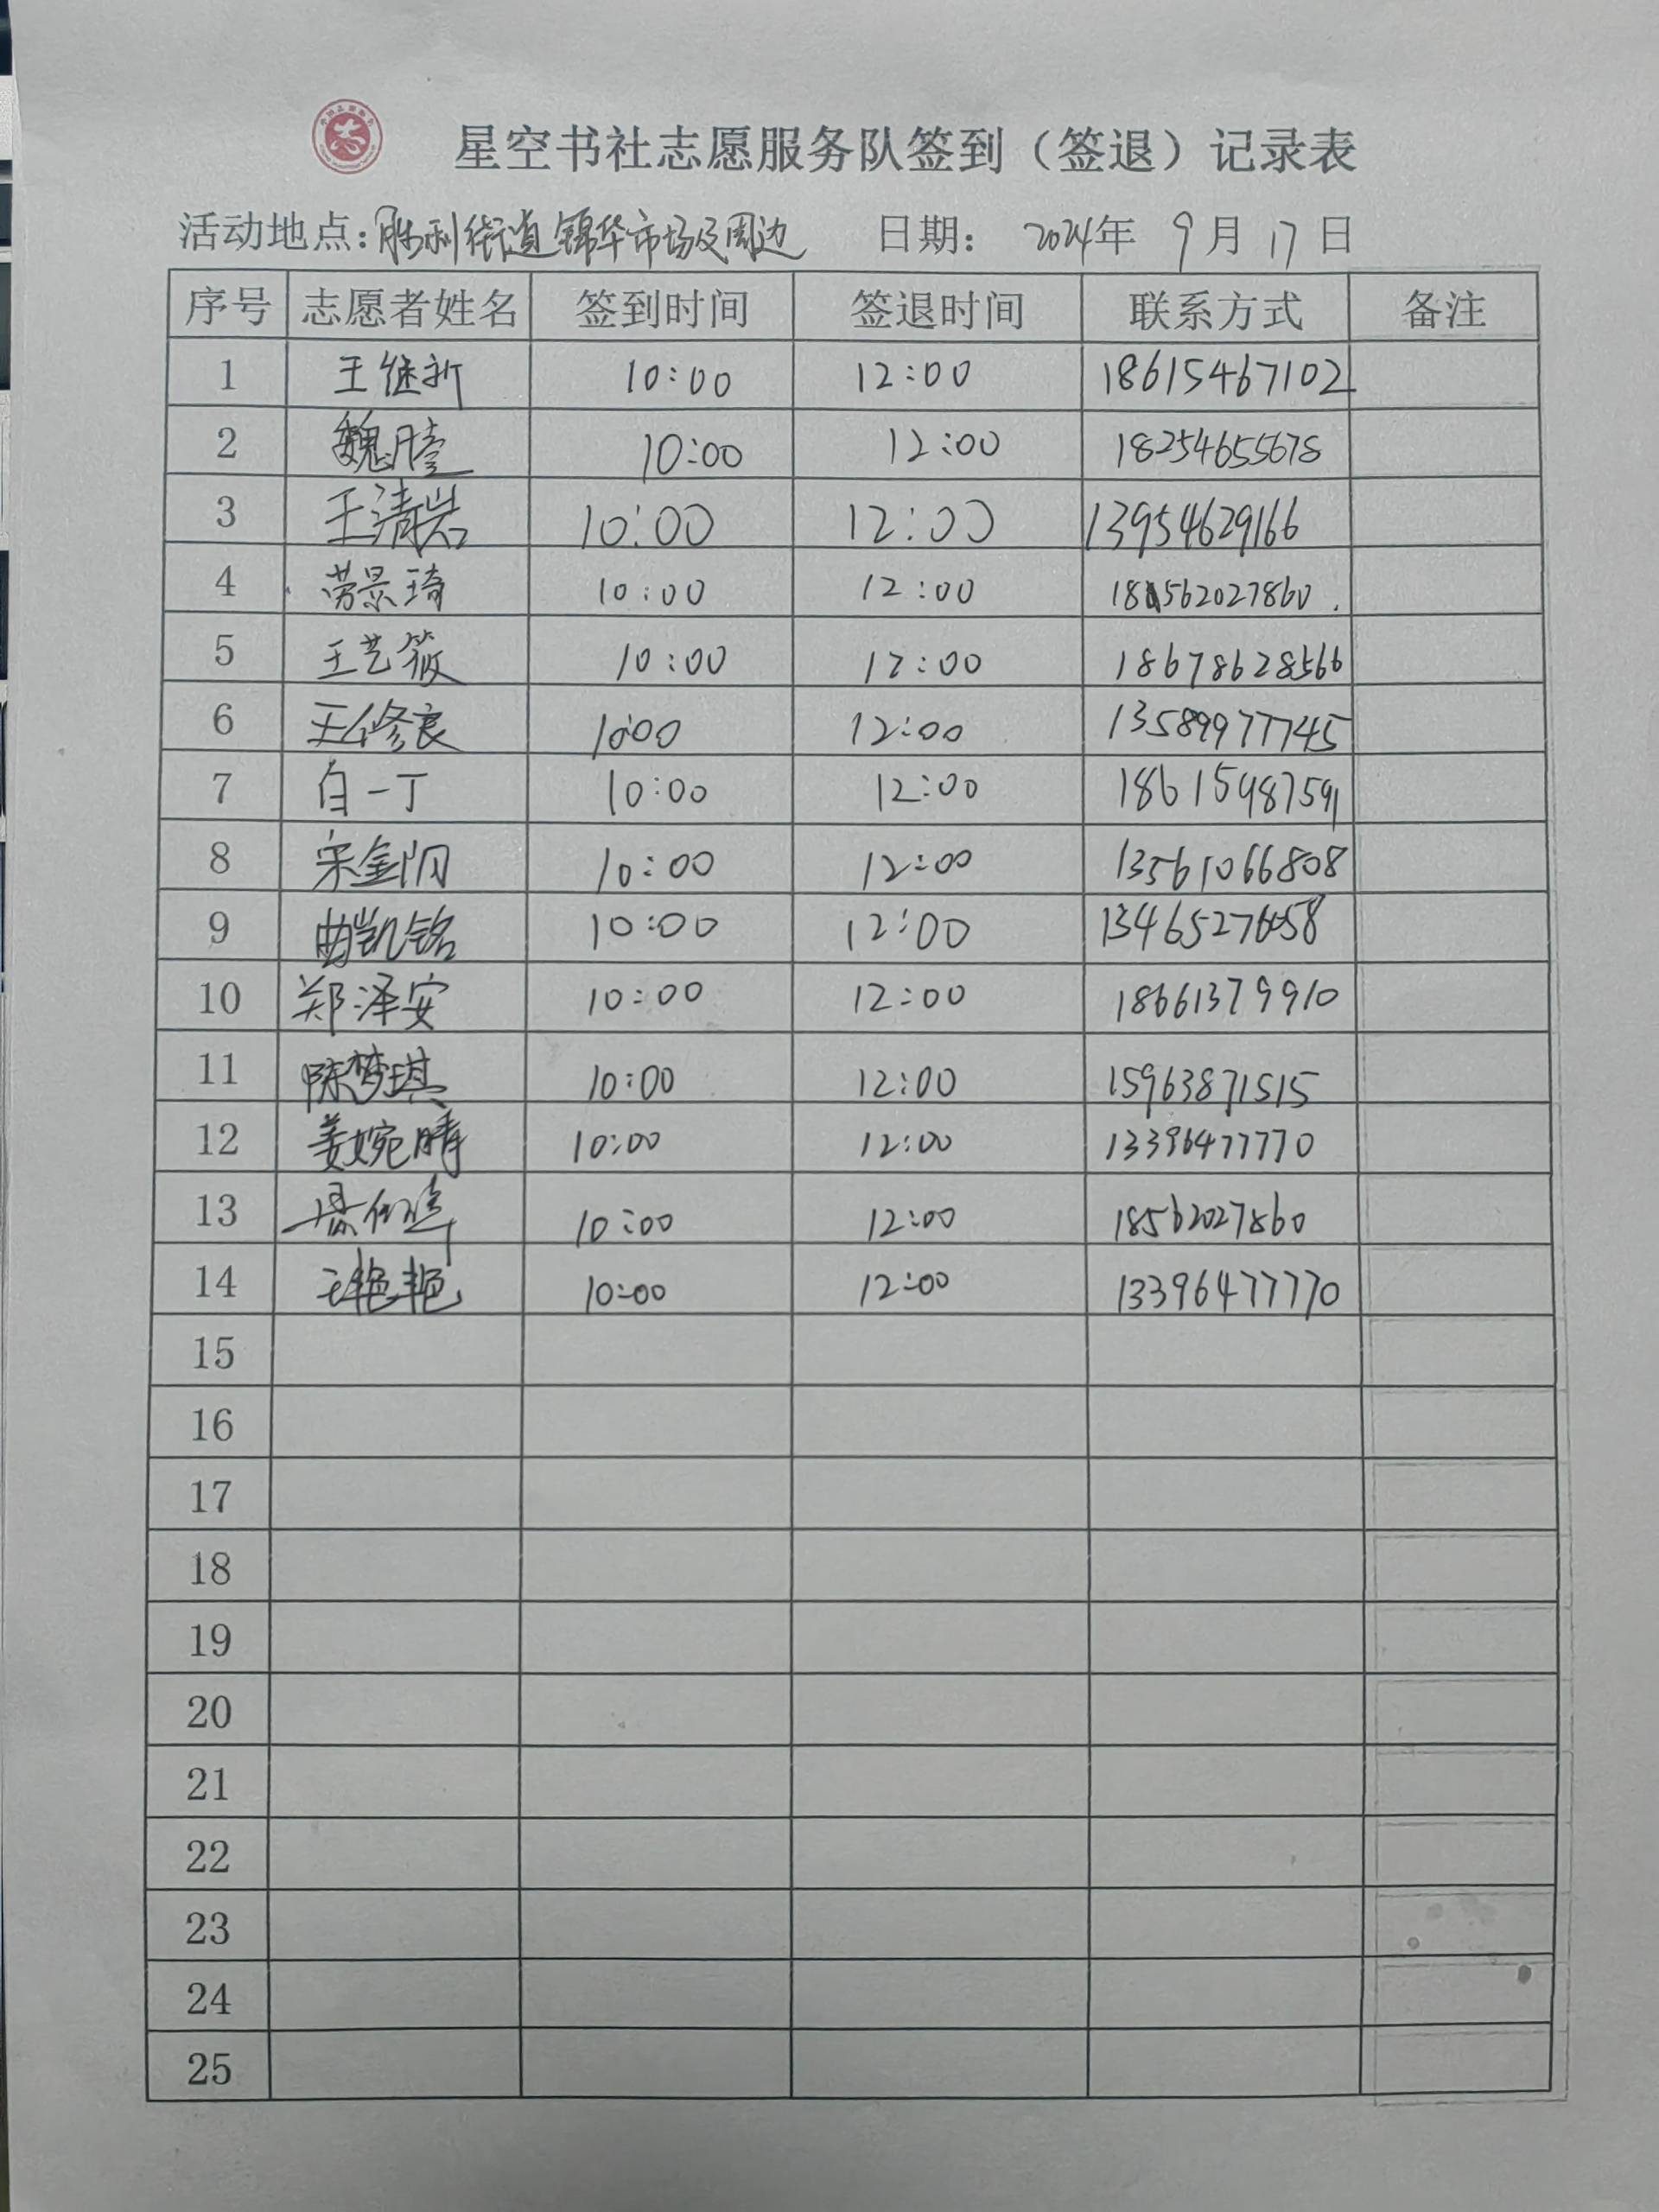 星空书社志愿服务队签到（签退）记录表
活动地点：胜利街道锦华市场及周边 日期： 2024年 9月 17日
序号 志愿者姓名 签到时间 签退时间 联系方式 备注
1 王继新 10:00 12:00 18615467102
2 魏 10:00 12:00 18254655678
3 王清岩 10:00 12:00 13954629166
4 劳景琦 10:00 12:00 18562027860
5 王艺筱 10:00 12:00 18678628566
6 王修良 10:00 12:00 13589977745
7 白一丁 10:00 12:00 18615987591
8 宋金阳 10:00 12:00 13561066808
9 曲凯铭 10:00 12:00
10 郑泽安 10:00 12:00 18661379910
11 陈梦琪 10:00 12:00 15963871515
12 姜婉晴 10:00 12:00 13396477770
13 10:00 12:00 18562027860
14 王艳艳 10:00 12:00 13396477770
15
16
17
18
19
20
21
22
23
24
25